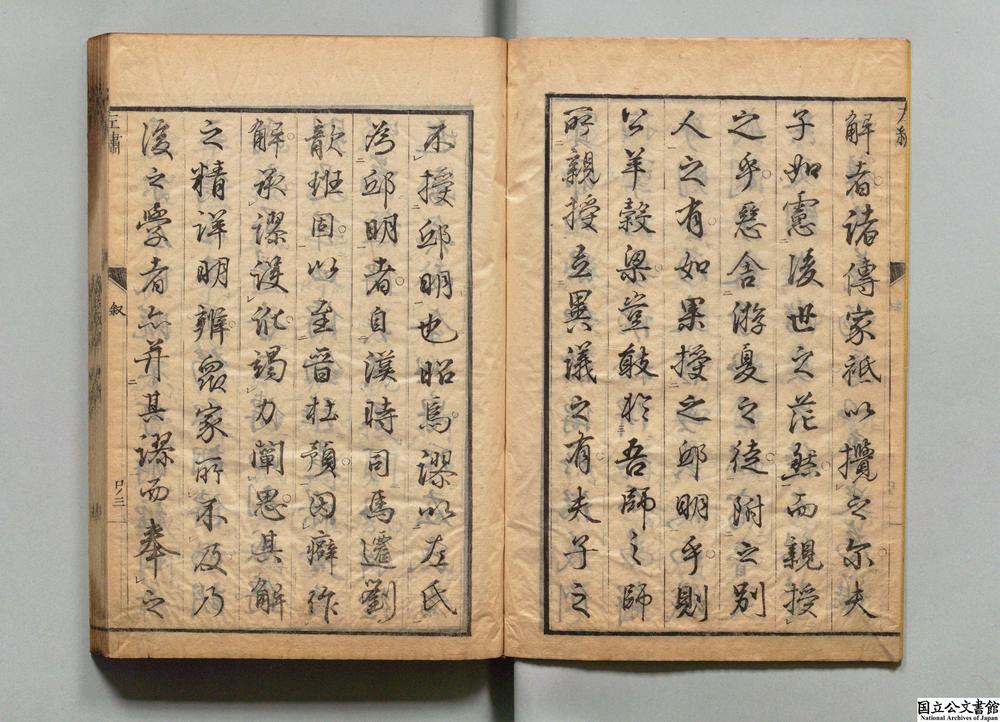 解者諸傳家祗以攬之尔夫
子如憲後世之茫然而親授
之乎慈舍游夏之徒附之別
人之有如果授之邱明乎則
公羊穀梁豈敢於吾師之師
所親授立異議之有夫子之
不授邱明也昭焉謬以左氏
為邱明者自漢時司馬遷劉
歆班固以至晉杜預因癖作
解承謬誤作竭力闡思其解
之精詳明辨眾家所不及乃
後之學者亦并其謬而奉之
叙
国立公文書館
National Archives of Japan